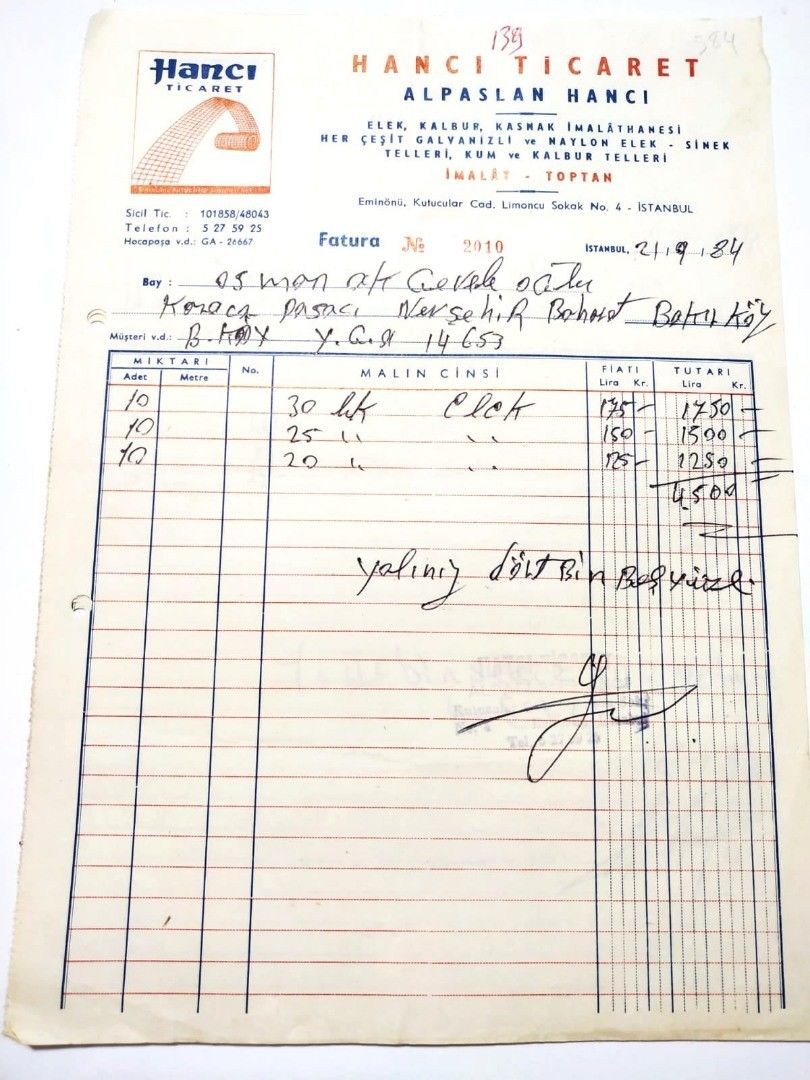 139
584
Hancı
TİCARET
HANCI TİCARET
ALPASLAN HANCI
ELEK, KALBUR, KASNAK İMALÂTHANESİ
HER ÇEŞİT GALVANİZLİ ve NAYLON ELEK - SİNEK
TELLERİ, KUM ve KALBUR TELLERİ
İMALÂT - TOPTAN
Eminönü, Kutucular Cad. Limoncu Sokak No. 4 - İSTANBUL
Sicil Tic. : 101858/48043
Telefon : 5 27 59 25
Hocapaşa v.d.: GA - 26667
Fatura № 2010
İSTANBUL, 21.9.1984
Bay : osman ak
Nevşehir Bakırköy
Müşteri v.d.: B.Köy 14653
MİKTARI No. MALIN CİNSİ FİATI TUTARI
Adet Metre Lira Kr. Lira Kr.
10 30 luk Elek 175- 1750-
10 25 " " 150- 1500-
10 20 " " 125- 1250-
4500
yalınız dört Bin Beşyüz